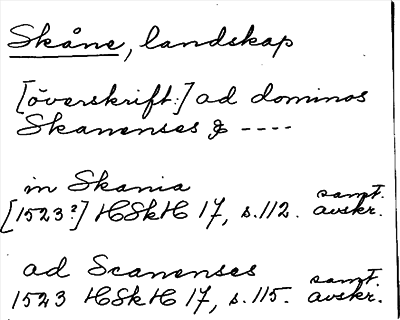 Skåne, landskap
[överskrift:] ad dominos
Skanenses & ----
in Skania
[1523?] HSkH 17, s.112. samt. avskr.
ad Scanenses
1523 HSkH 17, s.115. samt. avskr.